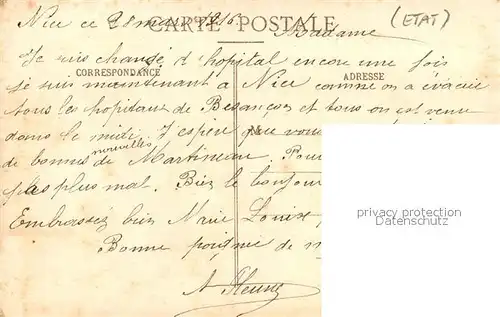 Nice ce 28 mars 1916
(ETAT)
CARTE POSTALE
Madame
Je suis changé d hopital encore une fois
CORRESPONDANCE
ADRESSE
je suis maintenant à Nice comme on a évacué
tous les hopitaux de Besançon et tous on est venu
dans le midi. J'espère que vous
nouvelles
de bonnes de Martineau. Pour
pas plus mal. Bien le bonjour
privacy protection
Datenschutz
Embrassez bien Marie Louise
Bonne poignée de m
A Fleury